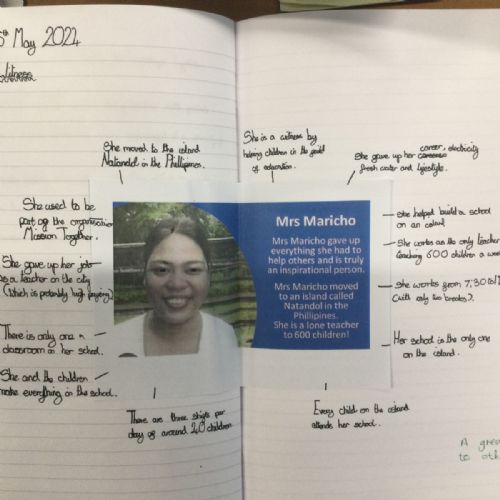 5th May 2024
Witness
She moved to the island
Natandol in the Phillipines.
She is a witness by
helping children in the
of education.
She gave up her career, electricity
fresh water and lifestyle.
She used to be
part of the organisation
Mission Together.
She gave up her job
as a teacher on the city
(which is probably high paying)
There is only one
classroom in her school.
She and the children
make everything in the school.
There are three shifts per
day of around 20 children.
Mrs Maricho
Mrs Maricho gave up
everything she had to
help others and is truly
an inspirational person.
Mrs Maricho moved
to an island called
Natandol in the
Philipines.
She is a lone teacher
to 600 children!
She helped build a school
on an island
She works as the only teacher
teaching 600 children a week
She works from 7.30
(with only two breaks).
Her school is the only one
on the island.
Every child on the island
attends her school.
A grea
to oth